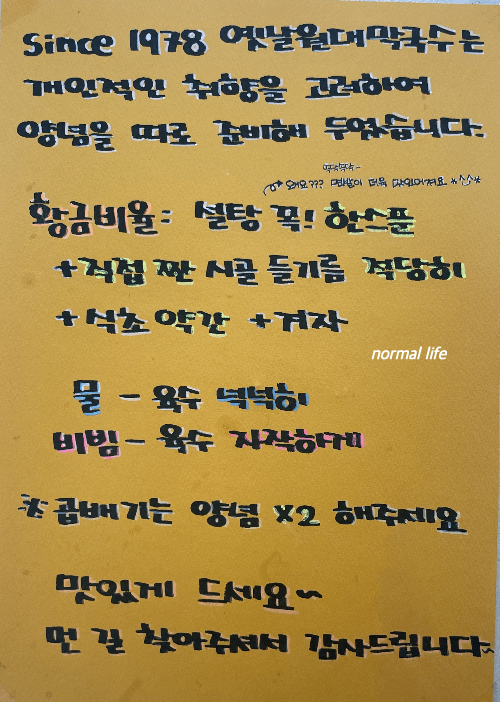 Since 1978 옛날원대막국수는
개인적인 취향을 고려하여
양념을 따로 준비해 두었습니다.
황금비율: 설탕 꼭! 한스푼
+ 직접 짠 시골 들기름 적당히
+ 식초 약간 + 겨자
normal life
물 - 육수 넉넉히
비빔 - 육수 자작하게
※ 곱배기는 양념 x2 해주세요
맛있게 드세요~
먼 길 찾아주셔서 감사드립니다~